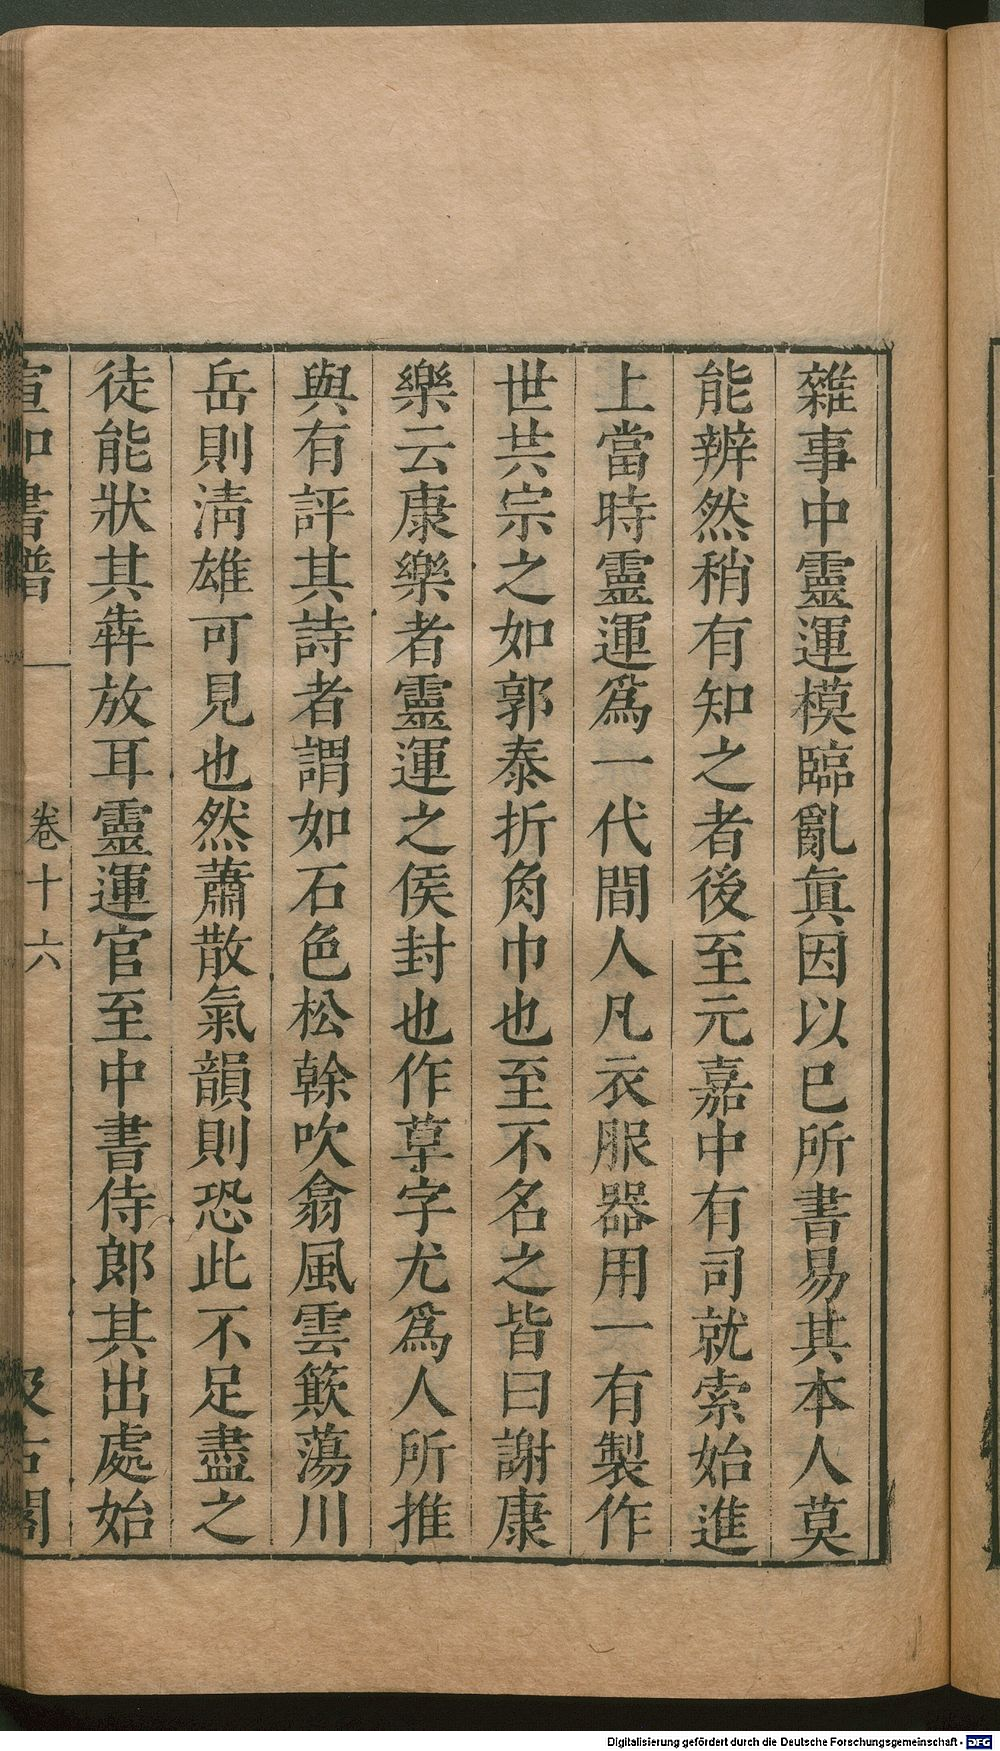 雜事中靈運模臨亂眞因以巳所書易其本人莫
能辨然稍有知之者後至元嘉中有司就索始進
上當時靈運爲一代間人凡衣服器用一有製作
世共宗之如郭泰折角巾也至不名之皆曰謝康
樂云康樂者靈運之侯封也作草字尤爲人所推
與有評其詩者謂如石色松榦吹翕風雲簸蕩川
岳則淸雄可見也然蕭散氣韻則恐此不足盡之
徒能狀其犇放耳靈運官至中書侍郎其出處始
宣和書譜 卷十六 汲古閣
Digitalisierung gefördert durch die Deutsche Forschungsgemeinschaft - DFG